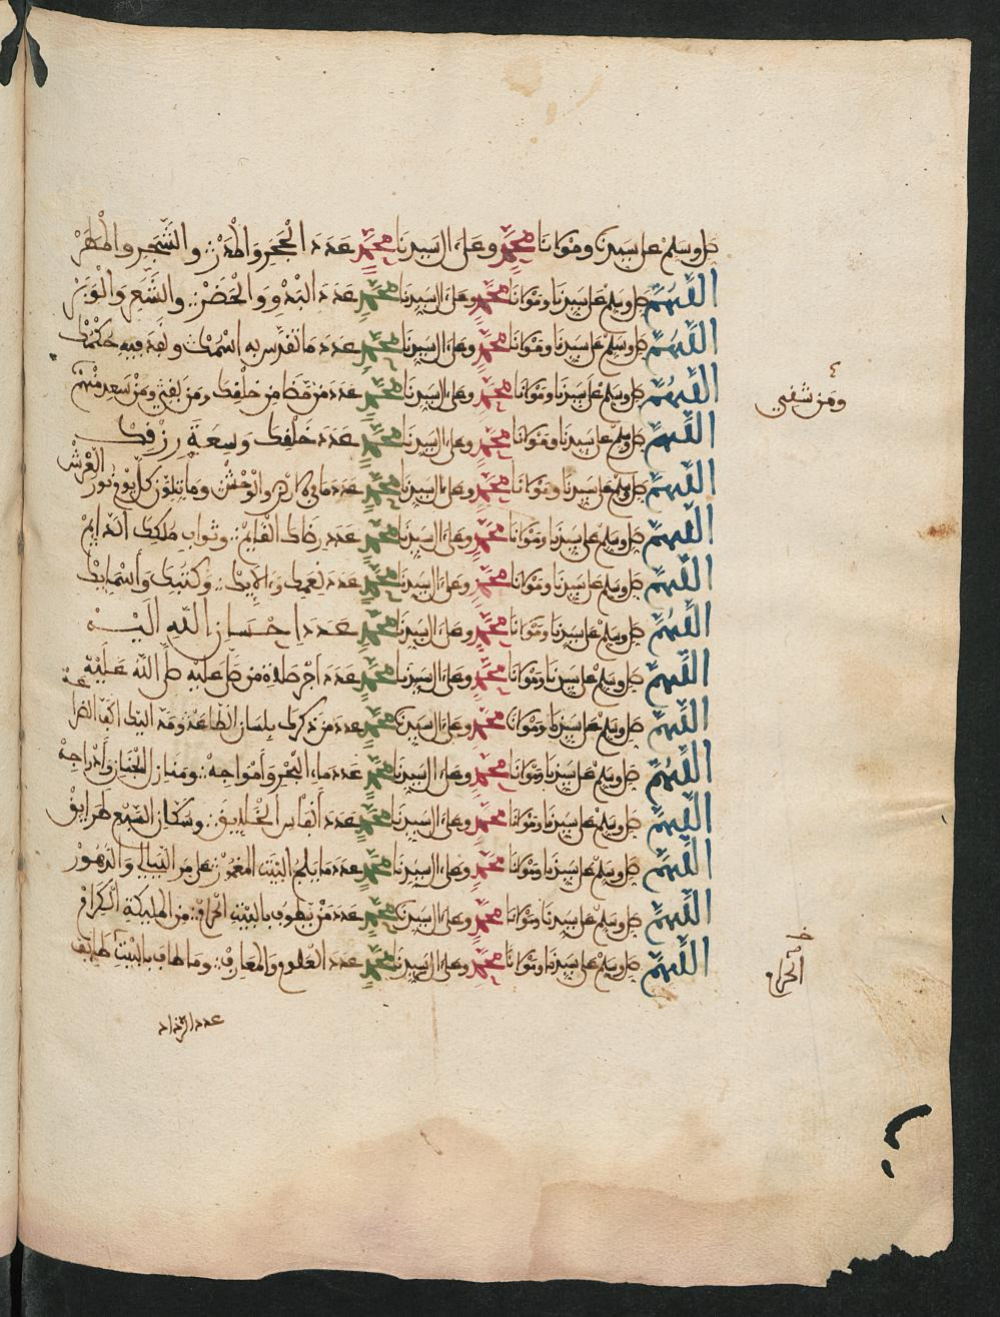 صل وسلم على سيدنا ومولانا محمد وعلى ءال سيدنا محمد عدد الحجر والمدر والشجر والمطر
اللهم صل وسلم على سيدنا ومولانا محمد وعلى ءال سيدنا محمد عدد البدو والحضر والشعر والوبر
اللهم صل وسلم على سيدنا ومولانا محمد وعلى ءال سيدنا محمد عدد ما تقدس به اسمك ونفد فيه حكمك
اللهم صل وسلم على سيدنا ومولانا محمد وعلى ءال سيدنا محمد عدد من مضا من خلقك ومن بقي ومن سعد منهم
ومن شقي
اللهم صل وسلم على سيدنا ومولانا محمد وعلى ءال سيدنا محمد عدد خلقك وسعة رزقك
اللهم صل وسلم على سيدنا ومولانا محمد وعلى ءال سيدنا محمد عدد ما في والوحش وما كل يوم نور العرش
اللهم صل وسلم على سيدنا ومولانا محمد وعلى ءال سيدنا محمد عدد رضاك القايم وثواب ملكك الدايم
اللهم صل وسلم على سيدنا ومولانا محمد وعلى ءال سيدنا محمد عدد نعمك وءالايك وكتبك وأسمايك
اللهم صل وسلم على سيدنا ومولانا محمد وعلى ءال سيدنا محمد عدد احسان الله اليه
اللهم صل وسلم على سيدنا ومولانا محمد وعلى ءال سيدنا محمد عدد اجر صلاة من صلى عليه صلى الله عليه
اللهم صل وسلم على سيدنا ومولانا محمد وعلى ءال سيدنا محمد عدد من ذكرك بلسان الطاعة ومد اليك اكف
اللهم صل وسلم على سيدنا ومولانا محمد وعلى ءال سيدنا محمد عدد ماء البحر وأمواجه ومنازل الجنان وأدراجه
اللهم صل وسلم على سيدنا ومولانا محمد وعلى ءال سيدنا محمد عدد أنفاس الخلايق وسكان السبع طرايق
اللهم صل وسلم على سيدنا ومولانا محمد وعلى ءال سيدنا محمد عدد ما يلج البيت المعمور على مر الليالي والدهور
اللهم صل وسلم على سيدنا ومولانا محمد وعلى ءال سيدنا محمد عدد من يطوف بالبيت الحرام من المليكة الكرام
اللهم صل وسلم على سيدنا ومولانا محمد وعلى ءال سيدنا محمد عدد العلوم والمعارف وما طاف بالبيت طايف
الحرام